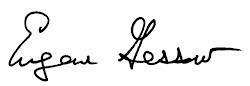 Eugene Gessow